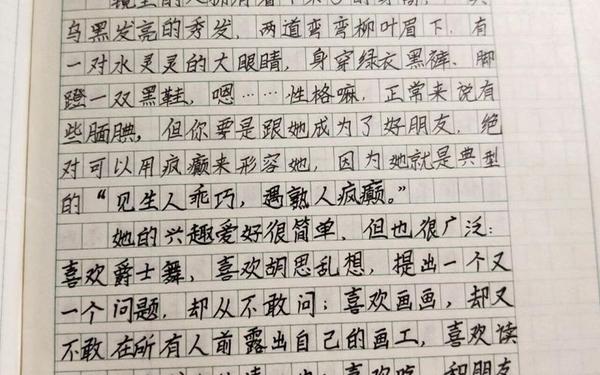 乌黑发亮的秀发，两道弯弯柳叶眉下，有
一对水灵灵的大眼睛，身穿绿衣黑裤、脚
蹬一双黑鞋，嗯……性格嘛，正常来说有
些腼腆，但你要是跟她成为了好朋友，绝
对可以用疯癫来形容她，因为她就是典型
的“见生人乖巧，遇熟人疯癫。”
她的兴趣爱好很简单，但也很广泛：
喜欢爵士舞，喜欢胡思乱想，提出一个又
一个问题，却从不敢问；喜欢画画，却又
不敢在所有人前露出自己的画工，喜欢读
喜欢吃，和朋友